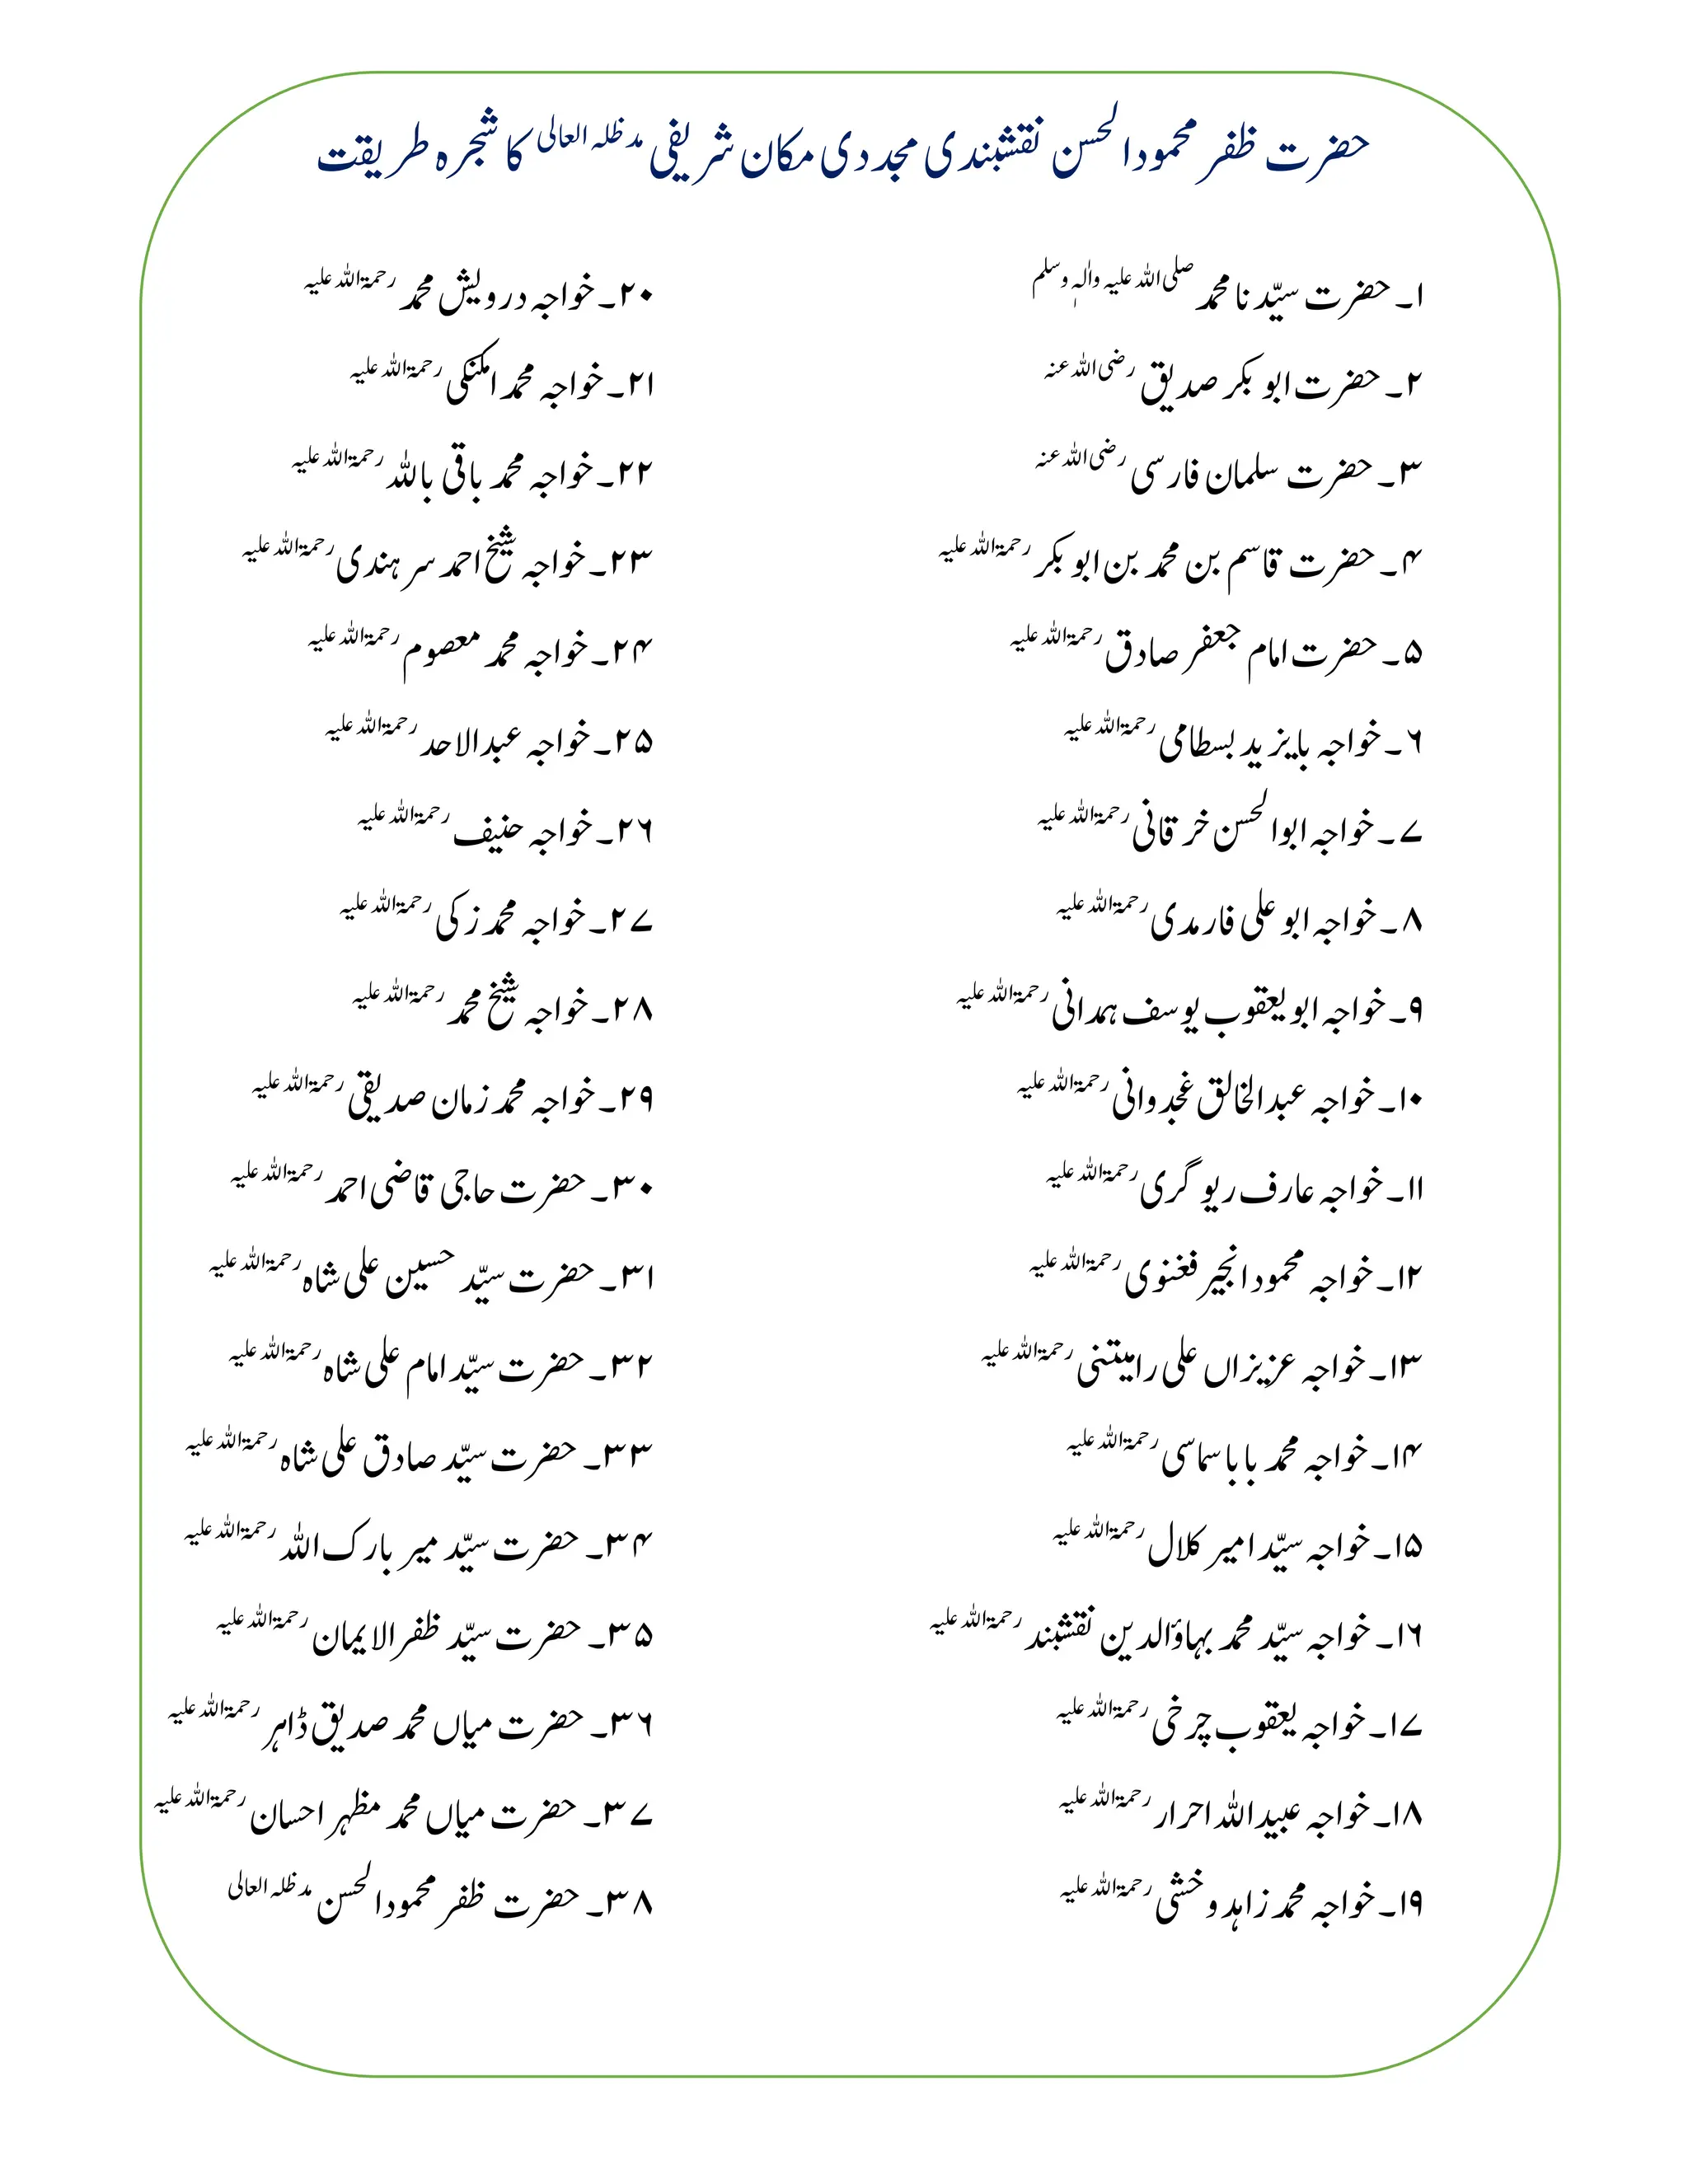 حضرت ظفر محمودالحسن نقشبندی مجددی مکان شریفی مدظلہ العالی کا شجرہ طریقت
۱۔ حضرت سیّدنا محمد صلی اللہ علیہ واٰلہٖ وسلم
۲۔ حضرت ابو بکر صدیق رضی اللہ عنہ
۳۔ حضرت سلمان فارسی رضی اللہ عنہ
۴۔ حضرت قاسم بن محمد بن ابو بکر رحمۃ اللہ علیہ
۵۔ حضرت امام جعفر صادق رحمۃ اللہ علیہ
۶۔ خواجہ بایزید بسطامی رحمۃ اللہ علیہ
۷۔ خواجہ ابوالحسن خرقانی رحمۃ اللہ علیہ
۸۔ خواجہ ابو علی فارمدی رحمۃ اللہ علیہ
۹۔ خواجہ ابو یعقوب یوسف ہمدانی رحمۃ اللہ علیہ
۱۰۔ خواجہ عبدالخالق غجدوانی رحمۃ اللہ علیہ
۱۱۔ خواجہ عارف ریو گری رحمۃ اللہ علیہ
۱۲۔ خواجہ محمود انجیر فغنوی رحمۃ اللہ علیہ
۱۳۔ خواجہ عزیزاں علی رامیتنی رحمۃ اللہ علیہ
۱۴۔ خواجہ محمد بابا سماسی رحمۃ اللہ علیہ
۱۵۔ خواجہ سیّد امیر کلال رحمۃ اللہ علیہ
۱۶۔ خواجہ سیّد محمد بہاؤالدین نقشبند رحمۃ اللہ علیہ
۱۷۔ خواجہ یعقوب چرخی رحمۃ اللہ علیہ
۱۸۔ خواجہ عبیداللہ احرار رحمۃ اللہ علیہ
۱۹۔ خواجہ محمد زاہد وخشی رحمۃ اللہ علیہ
۲۰۔ خواجہ درویش محمد رحمۃ اللہ علیہ
۲۱۔ خواجہ محمد امکنکی رحمۃ اللہ علیہ
۲۲۔ خواجہ محمد باقی باللہ رحمۃ اللہ علیہ
۲۳۔ خواجہ شیخ احمد سرہندی رحمۃ اللہ علیہ
۲۴۔ خواجہ محمد معصوم رحمۃ اللہ علیہ
۲۵۔ خواجہ عبدالاحد رحمۃ اللہ علیہ
۲۶۔ خواجہ حنیف رحمۃ اللہ علیہ
۲۷۔ خواجہ محمد زکی رحمۃ اللہ علیہ
۲۸۔ خواجہ شیخ محمد رحمۃ اللہ علیہ
۲۹۔ خواجہ محمد زمان صدیقی رحمۃ اللہ علیہ
۳۰۔ حضرت حاجی قاضی احمد رحمۃ اللہ علیہ
۳۱۔ حضرت سیّد حسین علی شاہ رحمۃ اللہ علیہ
۳۲۔ حضرت سیّد امام علی شاہ رحمۃ اللہ علیہ
۳۳۔ حضرت سیّد صادق علی شاہ رحمۃ اللہ علیہ
۳۴۔ حضرت سیّد میر بارک اللہ رحمۃ اللہ علیہ
۳۵۔ حضرت سیّد ظفرالایمان رحمۃ اللہ علیہ
۳۶۔ حضرت میاں محمد صدیق ڈاہر رحمۃ اللہ علیہ
۳۷۔ حضرت میاں محمد مظہر احسان رحمۃ اللہ علیہ
۳۸۔ حضرت ظفر محمودالحسن مدظلہ العالی